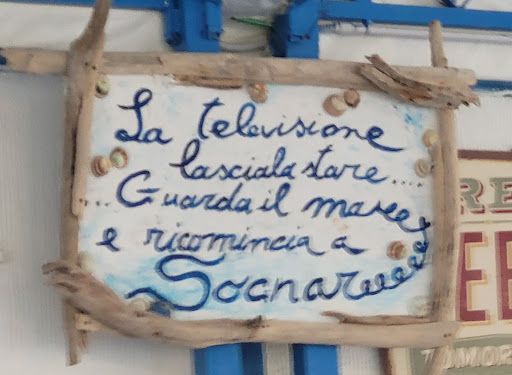 La televisione
lasciala stare....
....Guarda il mareee
e ricomincia a
Sognareeeee
RE
EE